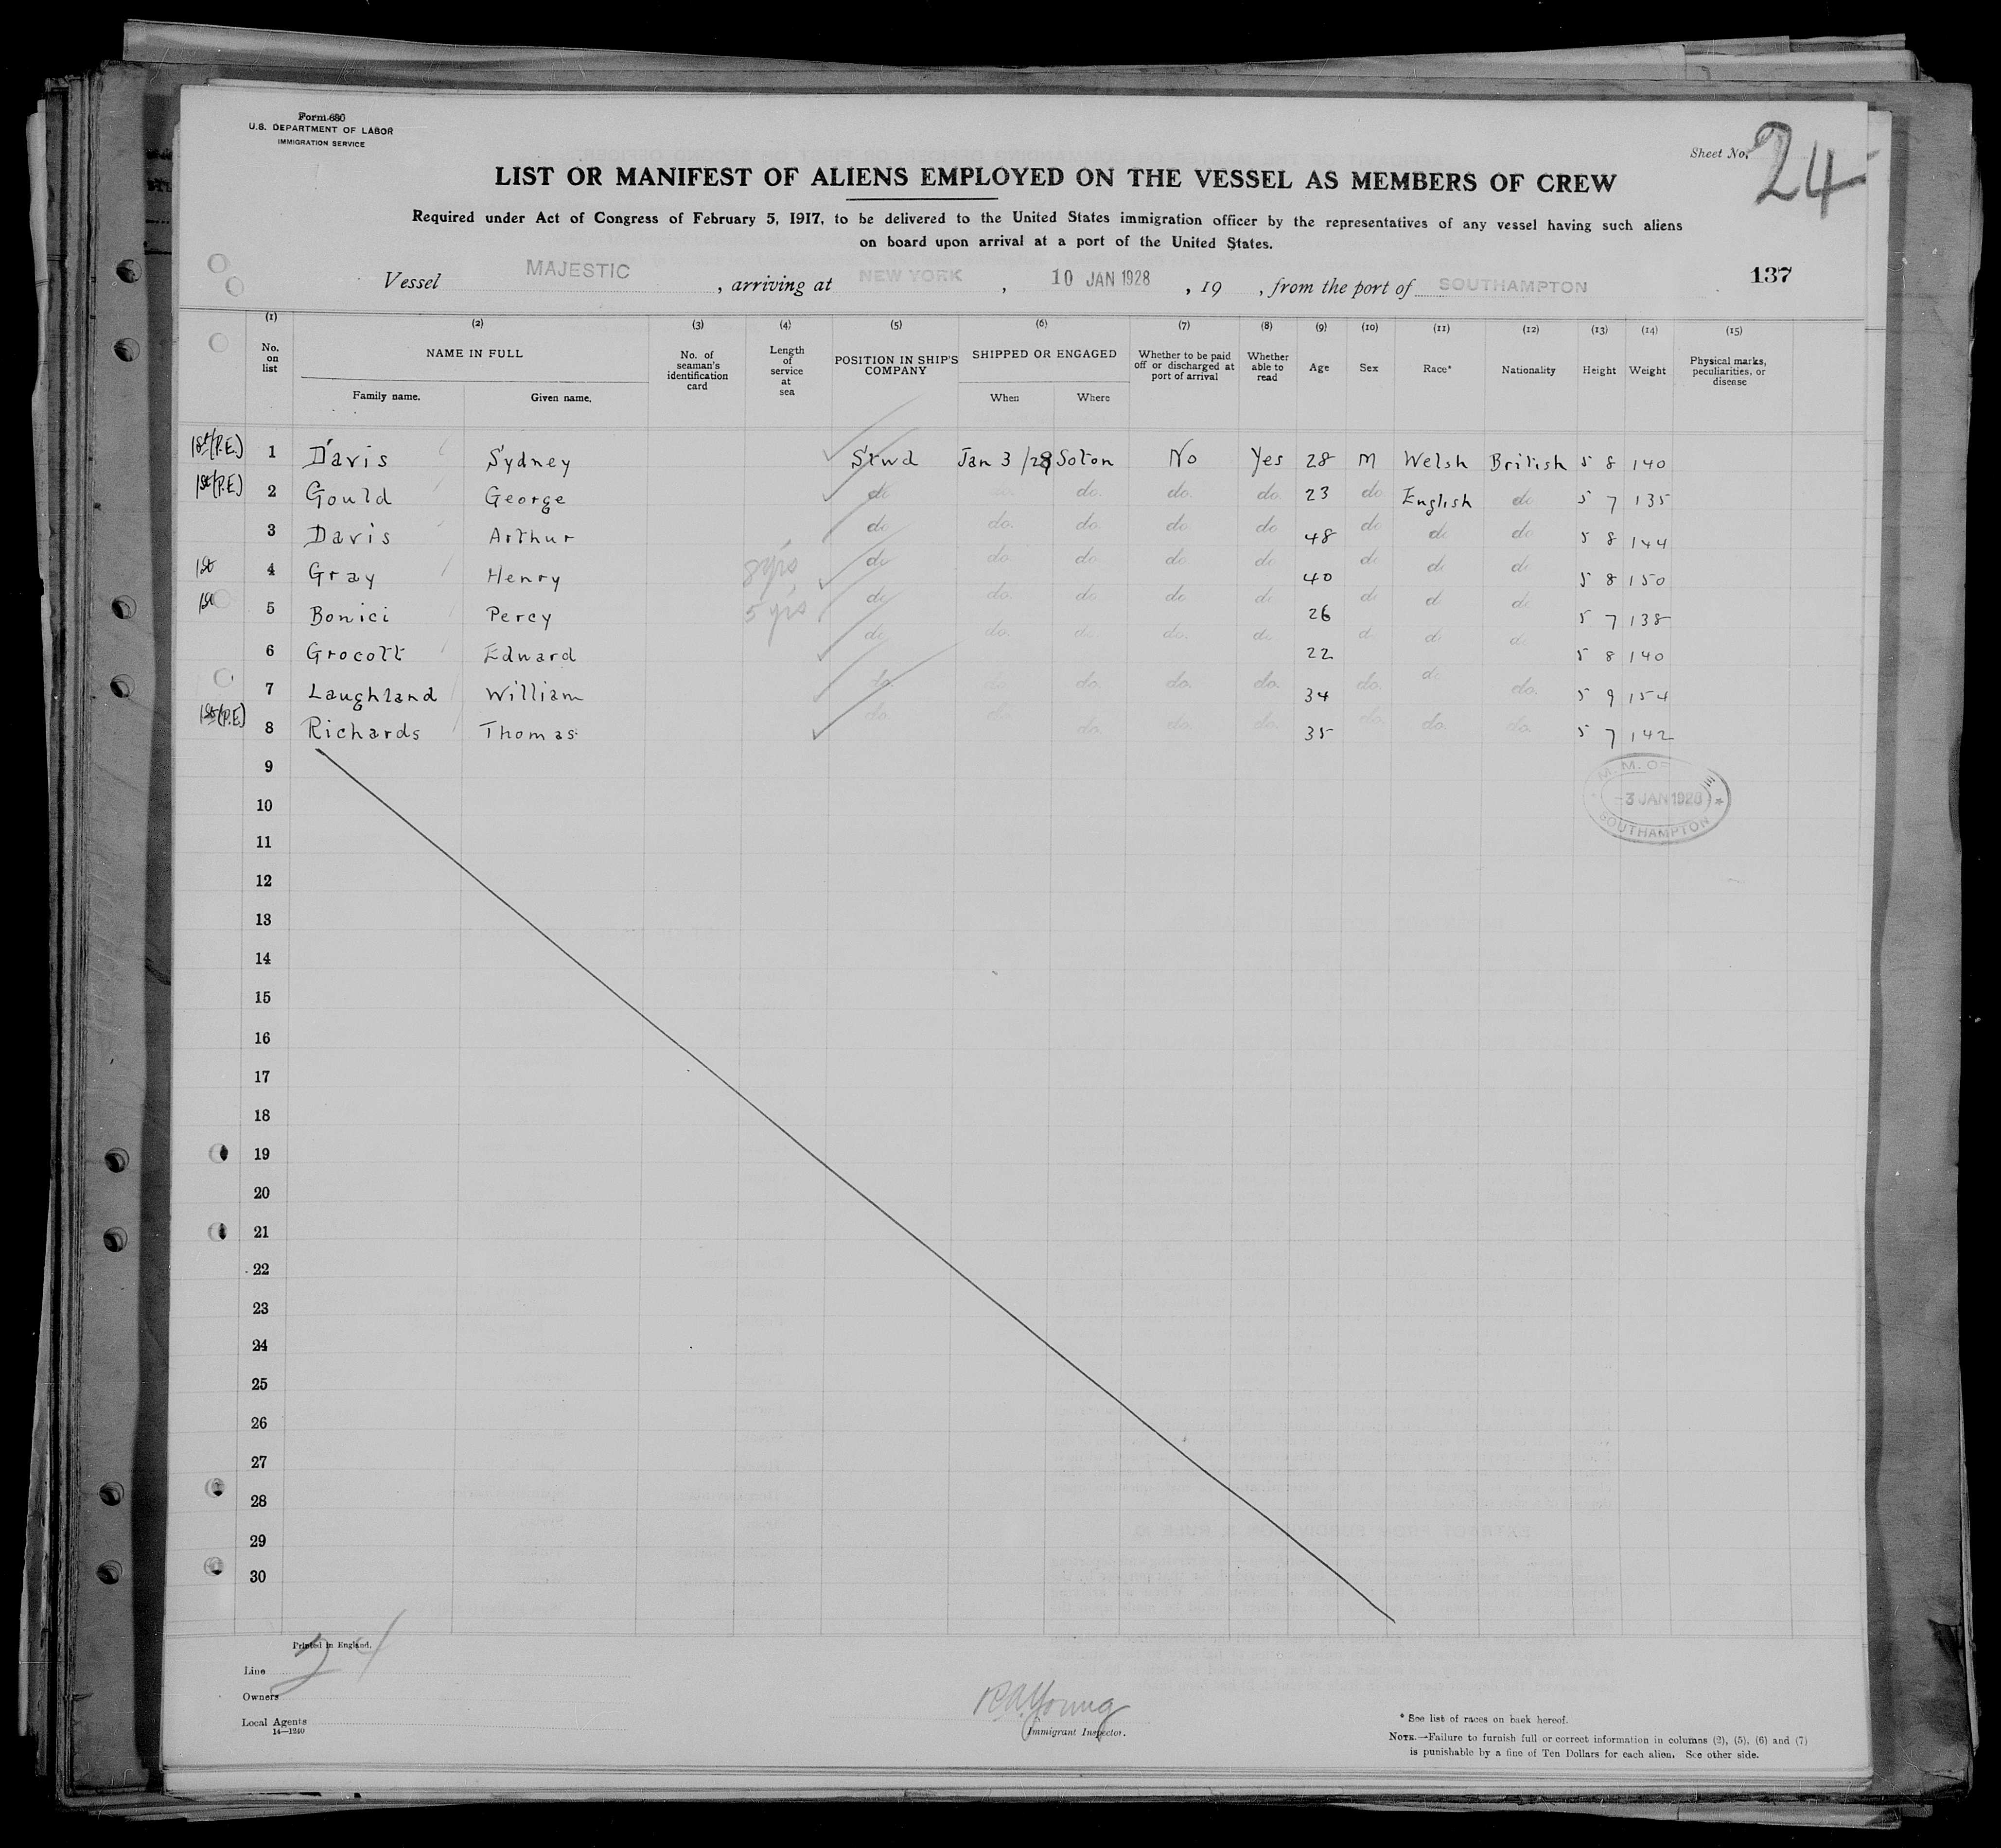 Form 680
U.S. DEPARTMENT OF LABOR
IMMIGRATION SERVICE
Sheet No. 24
LIST OR MANIFEST OF ALIENS EMPLOYED ON THE VESSEL AS MEMBERS OF CREW
Required under Act of Congress of February 5, 1917, to be delivered to the United States immigration officer by the representatives of any vessel having such aliens
on board upon arrival at a port of the United States.
Vessel MAJESTIC, arriving at NEW YORK, 10 JAN 1928, 19 , from the port of SOUTHAMPTON 137
(1) (2) (3) (4) (5) (6) (7) (8) (9) (10) (11) (12) (13) (14) (15)
No. on list NAME IN FULL No. of seaman's identification card Length of service at sea POSITION IN SHIP'S COMPANY SHIPPED OR ENGAGED Whether to be paid off or discharged at port of arrival Whether able to read Age Sex Race* Nationality Height Weight Physical marks, peculiarities, or disease
Family name. Given name. When Where
1st (P.E.) 1 Davis Sydney Stwd Jan 3/28 Soton No Yes 28 M Welsh British 5 8 140
1st (P.E.) 2 Gould George do do. do. do. do. 23 do English do 5 7 135
3 Davis Arthur do do. do. do do 48 do do do 5 8 144
1st 4 Gray Henry 8 yrs do do. do. do do 40 do do do 5 8 150
1st 5 Bonici Percy 5 yrs do do. do. do do 26 do do do 5 7 138
6 Grocott Edward do do. do. do. do 22 do do do 5 8 140
7 Laughland William do. do. do. do. do. 34 do. do. do. 5 9 154
1st (P.E.) 8 Richards Thomas do. do. do. do. do. 35 do. do. do. 5 7 142
9
10
11
12
13
14
15
16
17
18
19
20
21
22
23
24
25
26
27
28
29
30
M.M.O.
3 JAN 1928
SOUTHAMPTON
Printed in England.
Line
Owners
Local Agents
14—1240
R.A. Young
Immigrant Inspector.
* See list of races on back hereof.
NOTE.—Failure to furnish full or correct information in columns (2), (5), (6) and (7)
is punishable by a fine of Ten Dollars for each alien. See other side.